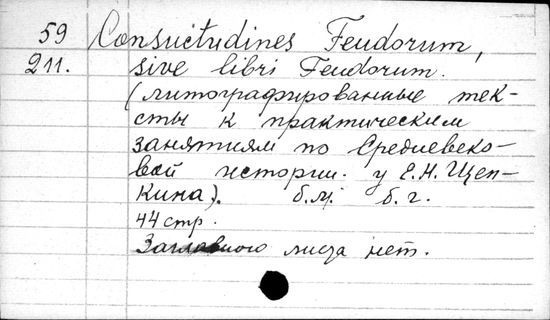 59 Consuetudines Feudorum,
211. sive libri Feudorum.
(литографированные тек-
сты к практическим
занятиям по Средневеко-
вой истории у Е.Н. Щеп-
кина). б.м. б.г.
44 стр.
Заглавного листа нет.